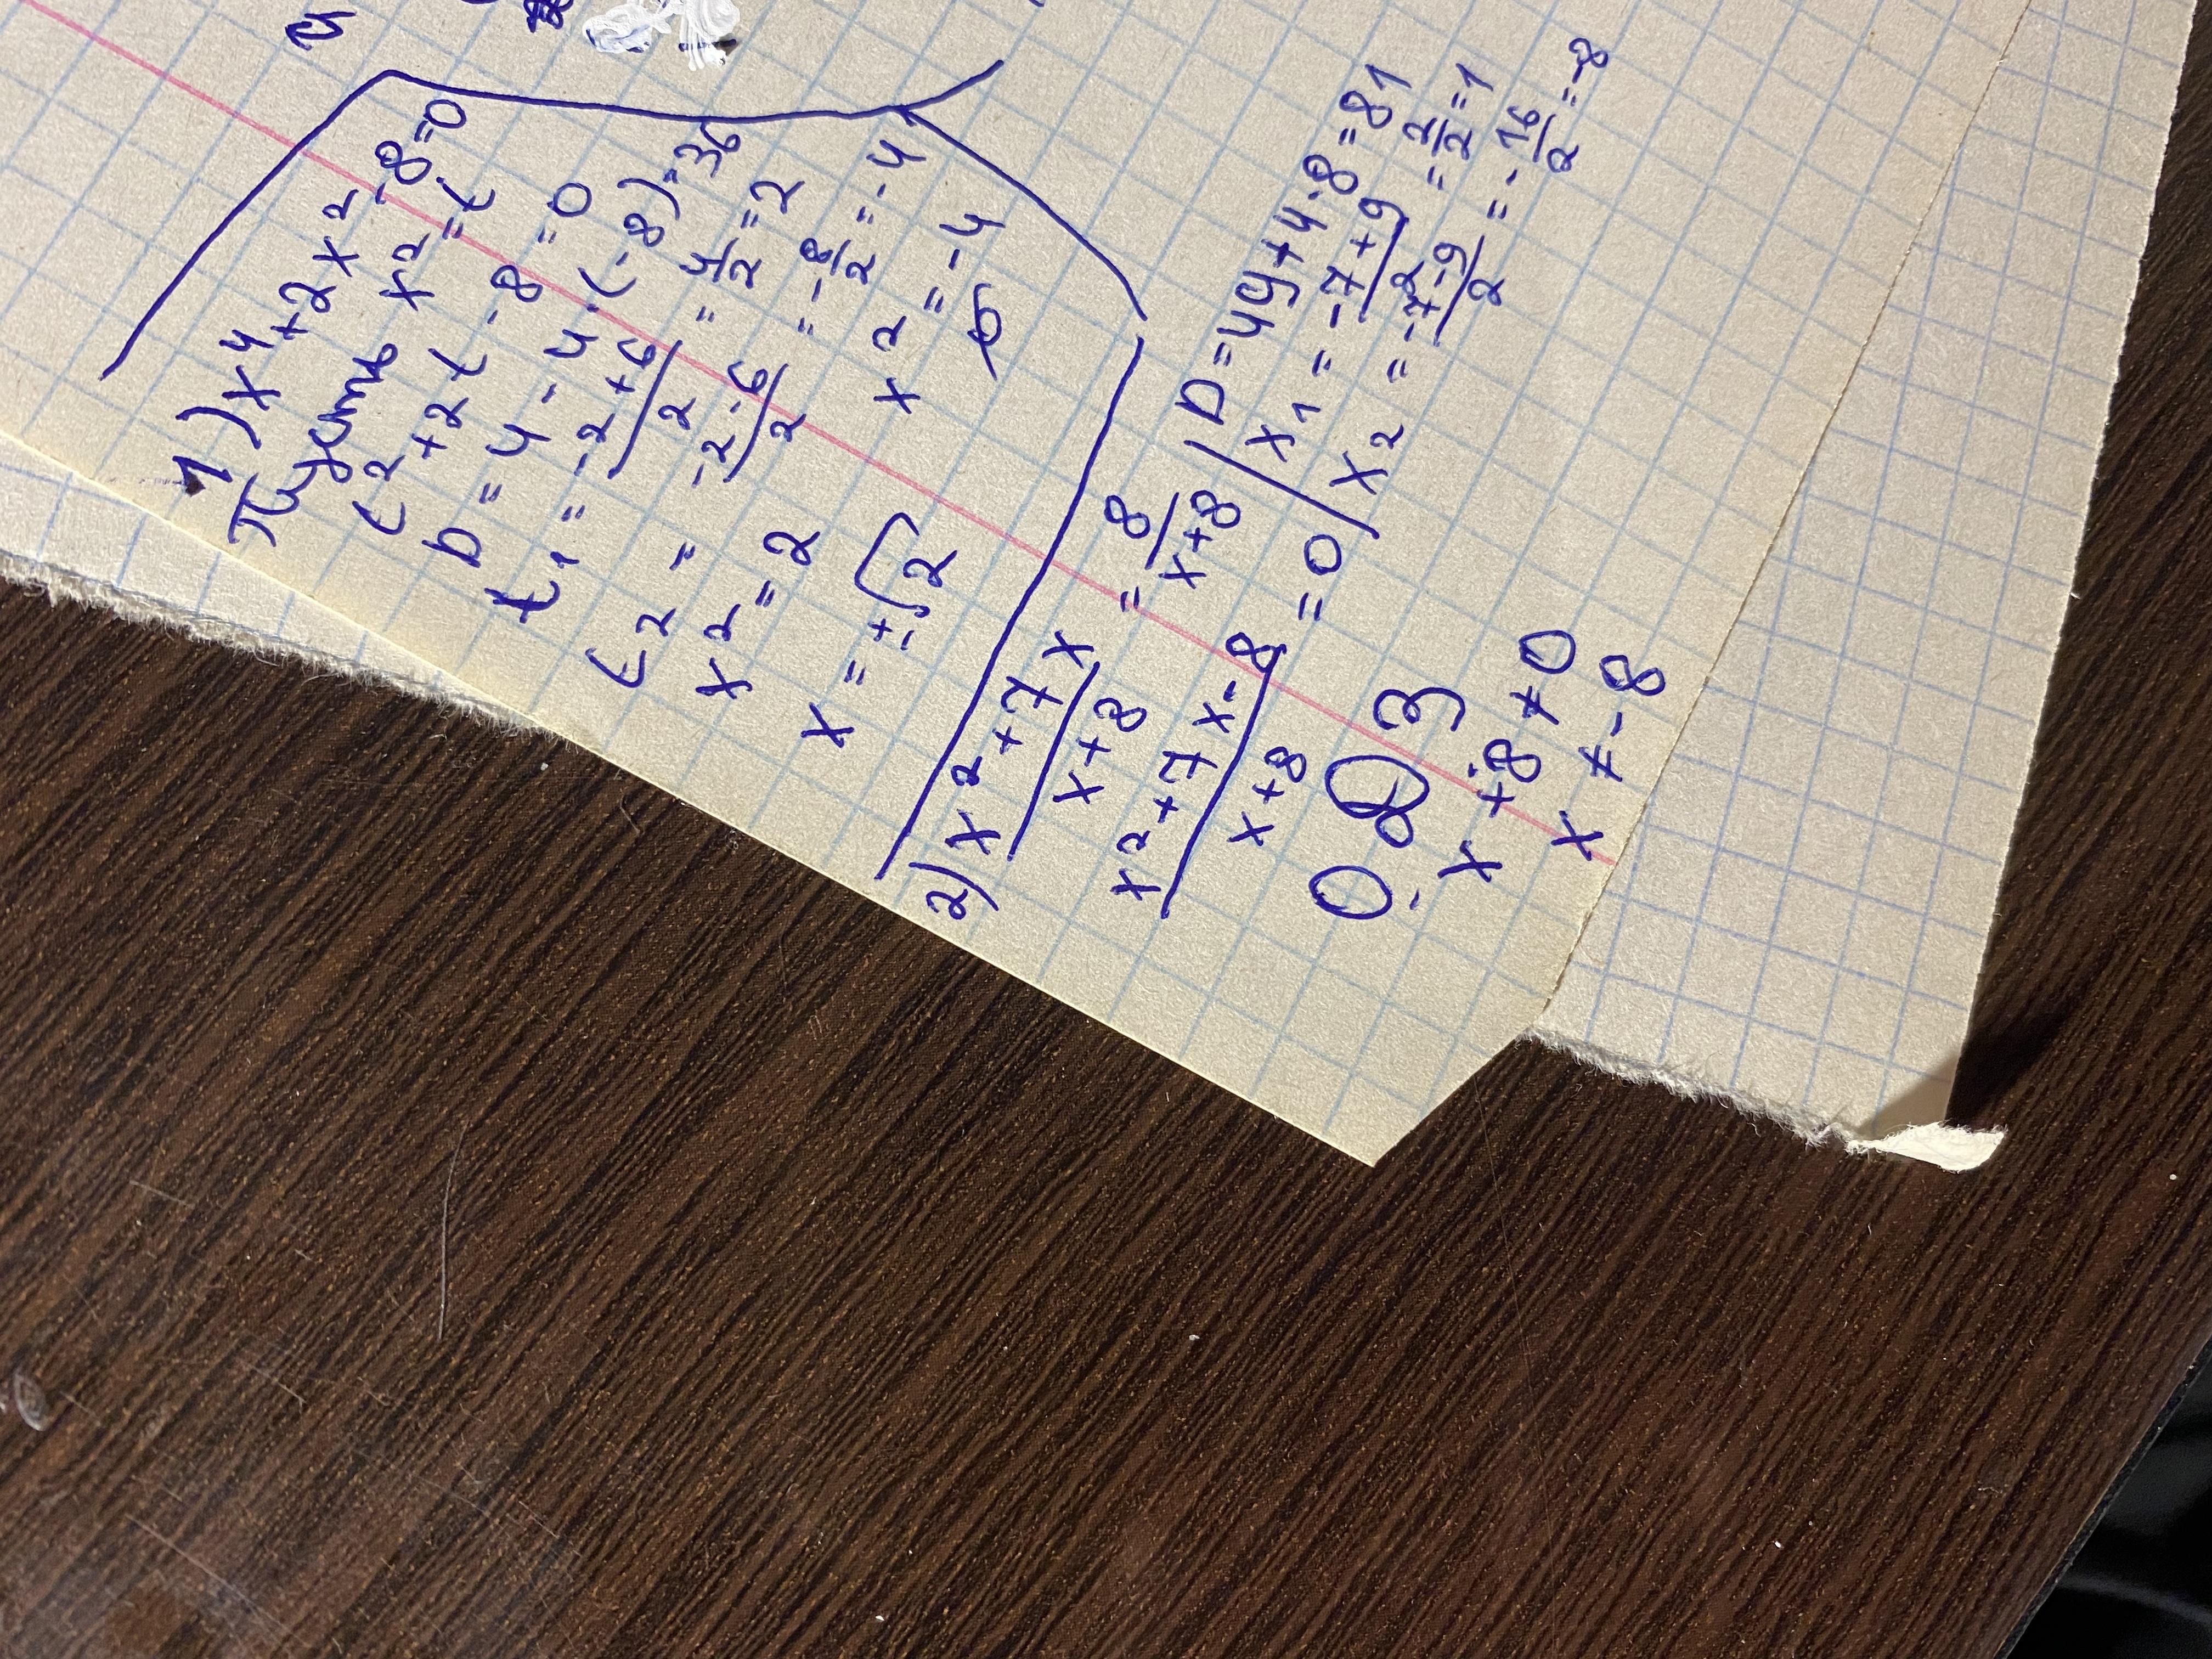 1) x⁴+2x²-8=0
Пусть x²=t
t²+2t-8=0
D=4-4·(-8)=36
t₁=(-2+6)/2=4/2=2
t₂=(-2-6)/2=-8/2=-4
x²=2 x²=-4
x=±√2 ∅
2) (x²+7x)/(x+8)=8/(x+8)
(x²+7x-8)/(x+8)=0
ОДЗ
x+8≠0
x≠-8
D=49+4·8=81
x₁=(-7+9)/2=2/2=1
x₂=(-7-9)/2=-16/2=-8